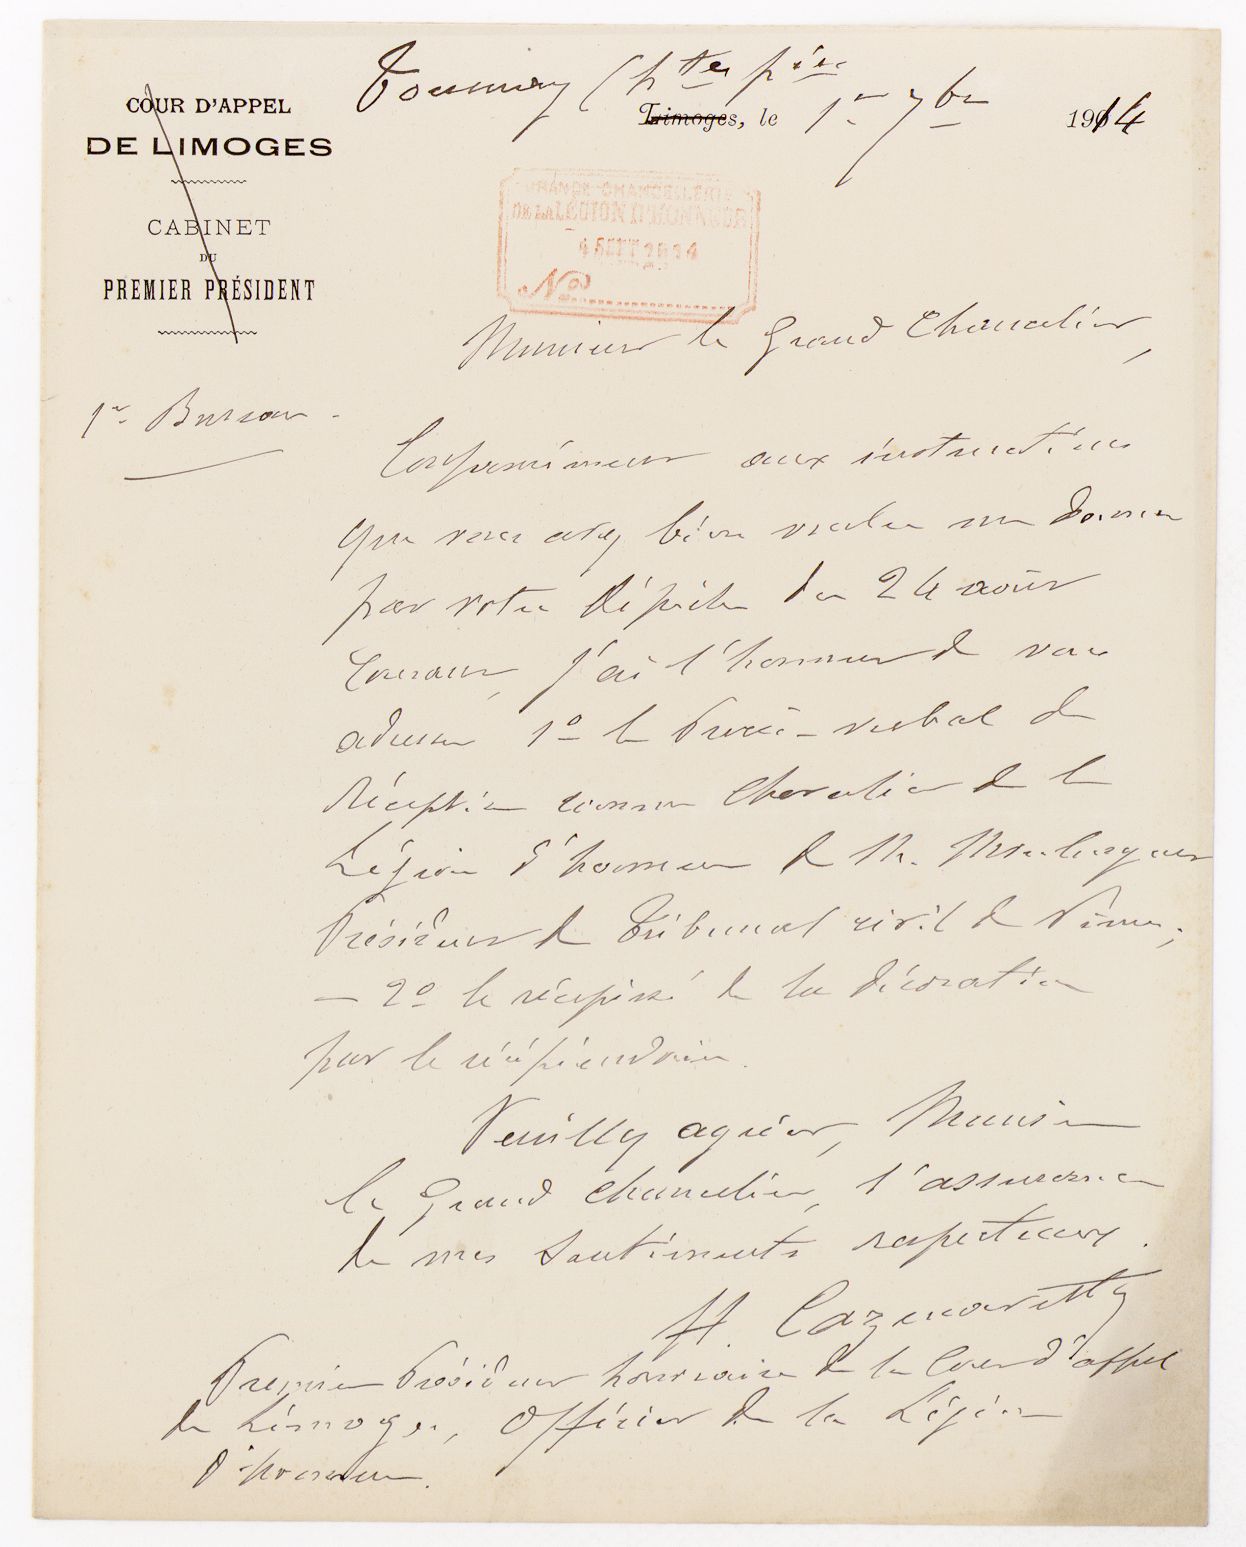 COUR D'APPEL
DE LIMOGES
CABINET
DU
PREMIER PRÉSIDENT
Tournay (htes pées
Limoges, le 1er 7bre 1914
GRANDE CHANCELLERIE
DE LA LÉGION D'HONNEUR
4 SEPT 1914
No
Monsieur le Grand Chancelier,
1er Bureau
Conformément aux instructions
que vous avez bien voulu me donner
par votre dépêche du 24 août
courant, j'ai l'honneur de vous
adresser 1o le Procès-verbal de
réception comme Chevalier de la
Légion d'honneur de M.
Président du Tribunal civil de Nîmes;
— 2o le récépissé de la décoration
par le récipiendaire.
Veuillez agréer, Monsieur
le Grand Chancelier, l'assurance
de mes sentiments respectueux.
H.
Premier Président honoraire de la Cour d'appel
de Limoges, Officier de la Légion
d'honneur.